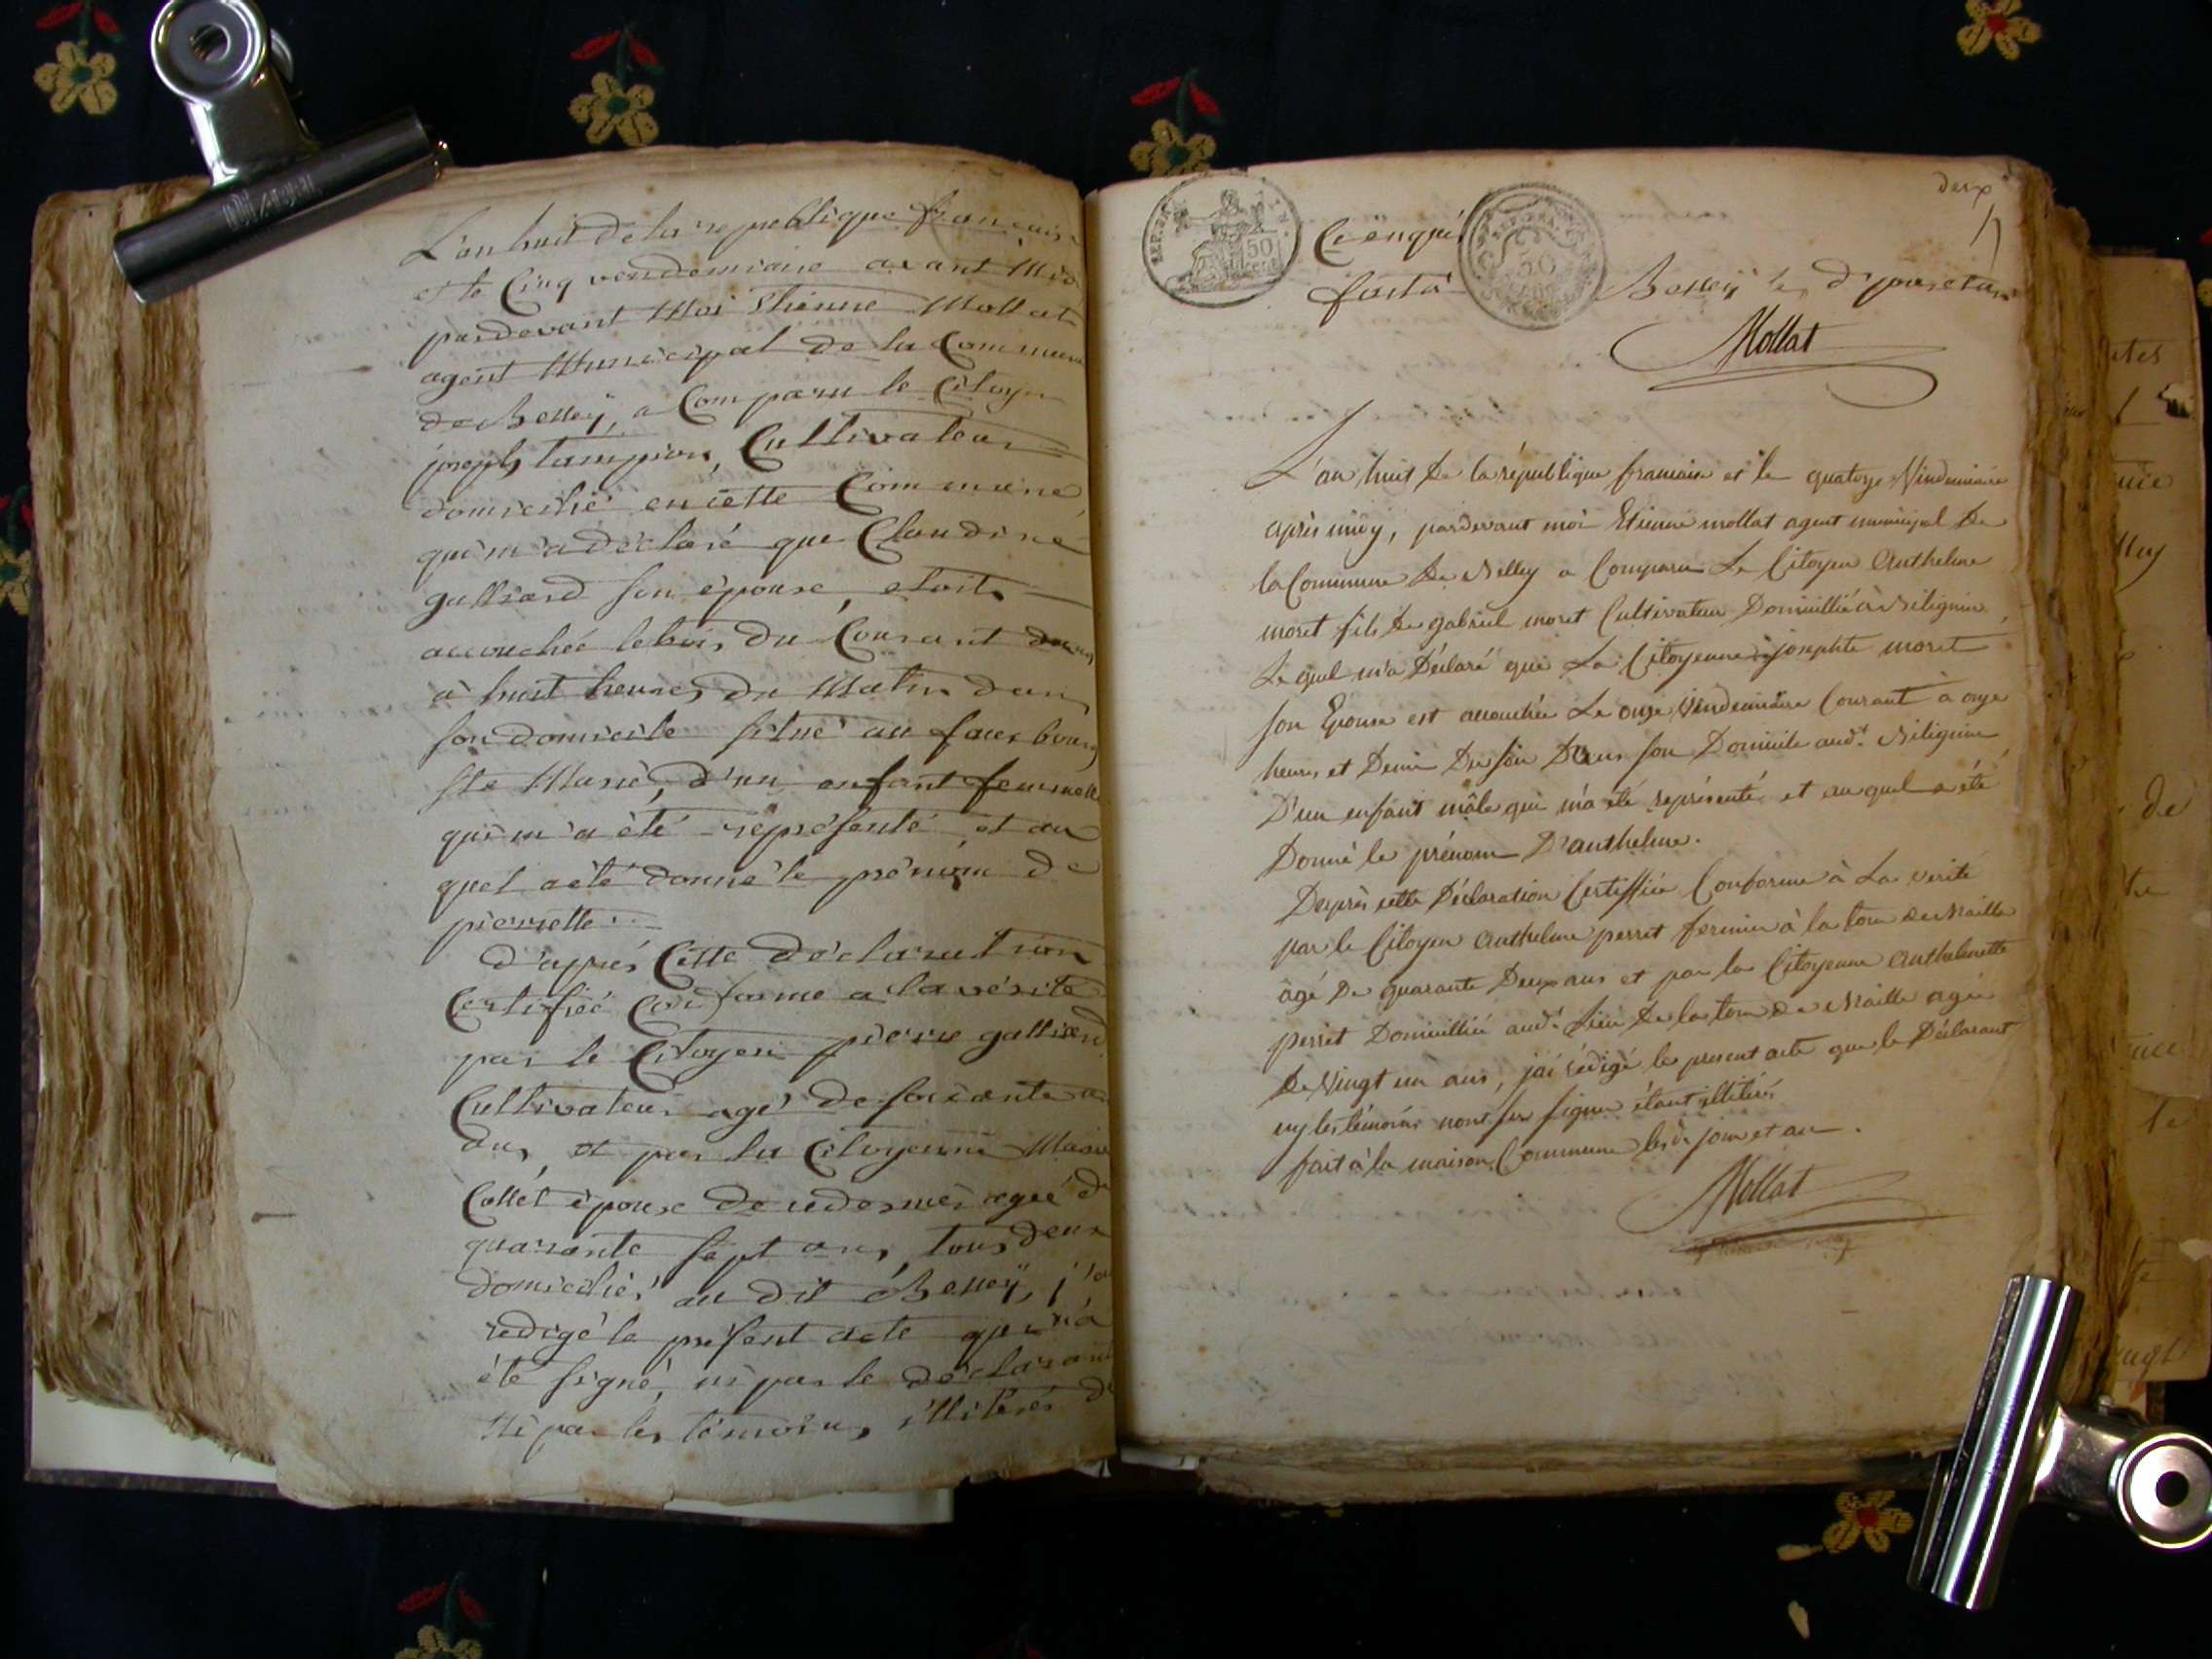 L'an huit de la republique française
et le Cinq vendemiaire avant Midi
pardevant Moi Etienne Mollat
agent Municipal de la Commune
de Belleÿ, a Comparu le Citoyen
joseph tampion, Cultivateur
domicilié en cette Commune
qui m'a déclaré que Claudine
galliard son épouse, etoit
accouchée le trois du Courant
à huit heures du Matin dans
son domicile situé au fauxbourg
Ste Marie, d'un enfant femmelle
qui m'a été représenté et au
quel a été donné le prénom de
pierrette.
d'après Cette déclaration
Certifiée Conforme a la vérité
par le Citoyen pierre galliard
Cultivateur agé de soixante
ans, et par la Citoyenne Marie
Collet épouse de agée de
quarante sept ans, tous deux
domiciliés au dit Belleÿ, j'ai
redigé le présent acte qui n'a
été signé, ni par le déclarant
Ni par les témoins, illitérés de
deux
Ce enquis
fait à Belleÿ les d. jour et an
Mollat
L'an huit de la république francaise et le quatorze Vindemiaire
après midy, pardevant moi Etienne mollat agent municipal de
la Commune de Belley a Comparu Le Citoyen Anthelme
moret fils de gabriel moret Cultivateur Domicillié à Bilignin
Le quel m'a Déclaré que La Citoyenne josephte moret
son Epouse est accouchée Le onze Vindemiaire Courant à onze
heures et Demie Du soir Dans son Domicile aud.t Bilignin
D'un enfant mâle qui m'a été représenté, et au quel a été
Donné le prénom D'anthelme.
Daprès cette Déclaration Certiffiée Conforme à La verité
par le Citoyen Anthelme perret fermier à la tour de Naille
âgé De quarante Deux ans et par la Citoyenne Anthelmette
perret Domicilliée aud.t Lieu de la tour de Naille agée
De Vingt un ans, j'ai rédigé le present acte que le Déclarant
ny les témoins n'ont su signer étant illitérés
fait à la maison Commune les d. jour et an.
Mollat